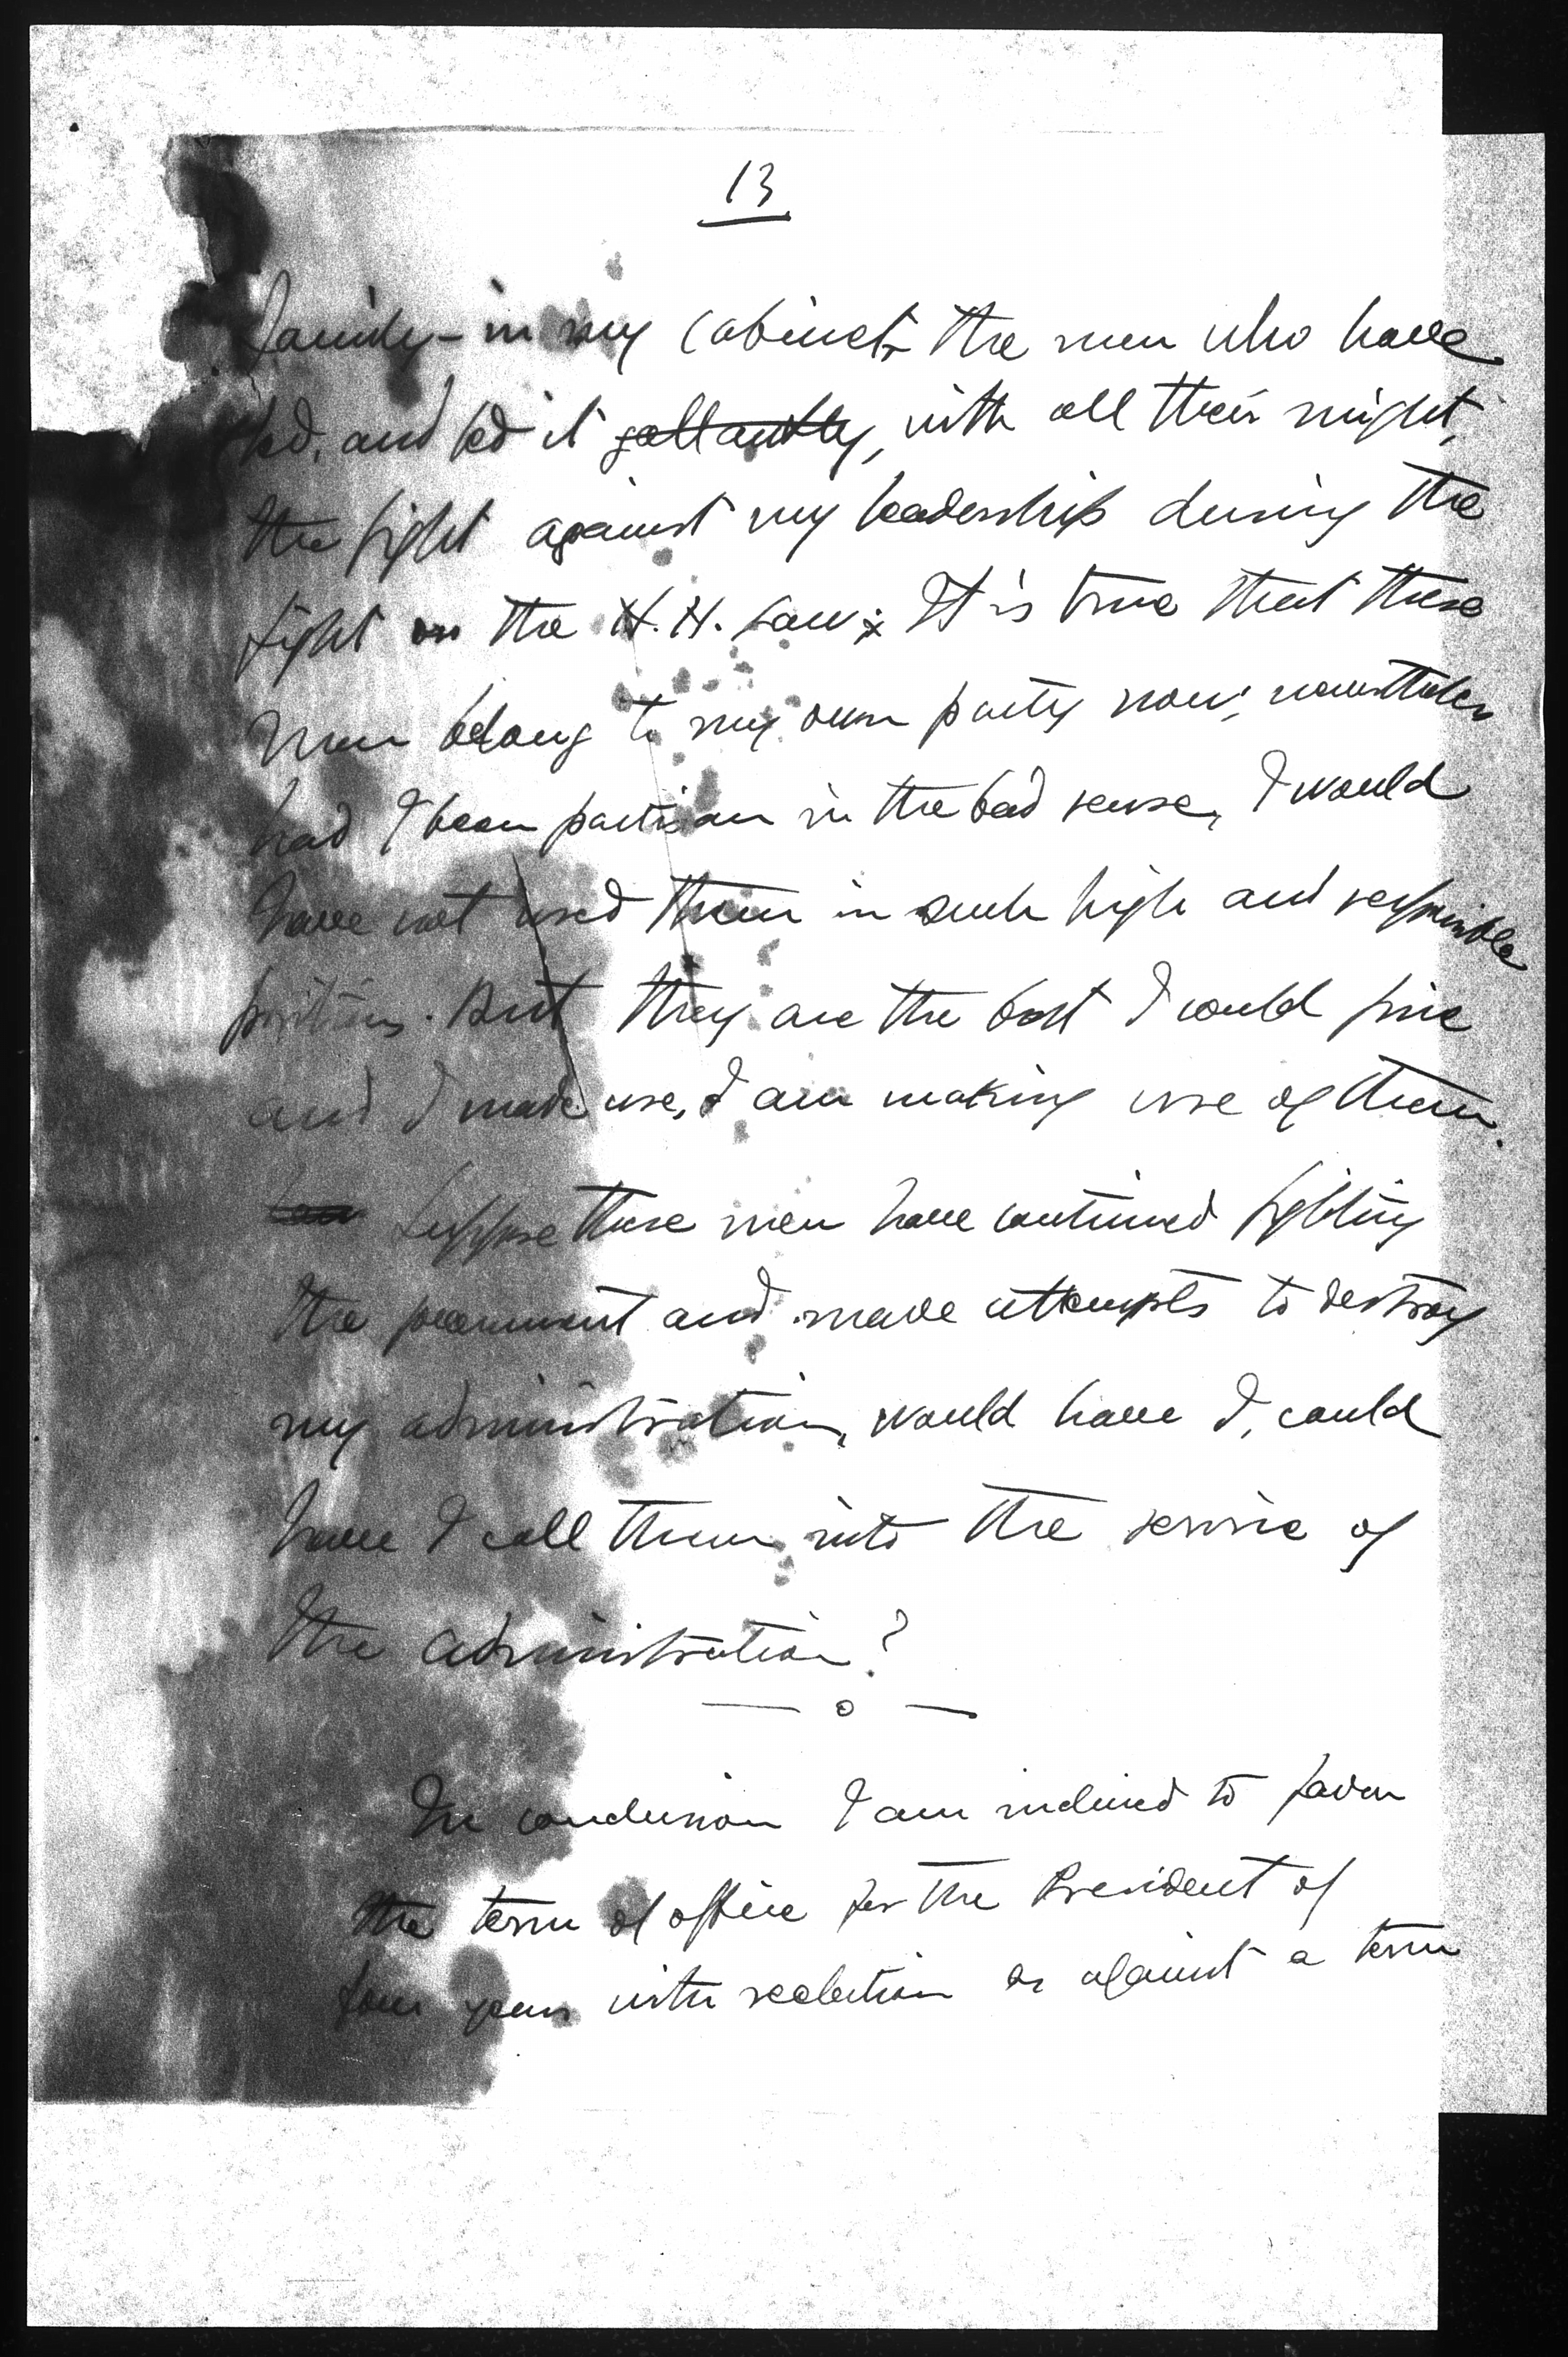 13
family – in my cabinet – the men who have
led, and led it gallantly, with all their might,
the fight against my leadership during the
fight on the H. H. Law; It is true that these
men belong to my own party now; nevertheless
had I been partisan in the bad sense, I would
have not used them in such high and responsible
positions. But they are the best I could find
and I made use, I am making use of them.
Suppose these men have continued fighting
the government and made attempts to destroy
my administration, would have I, could
have I call them into the service of
the administration?
— o —
In conclusion I am inclined to favor
the term of office for the President of
four years with reelection as against a term